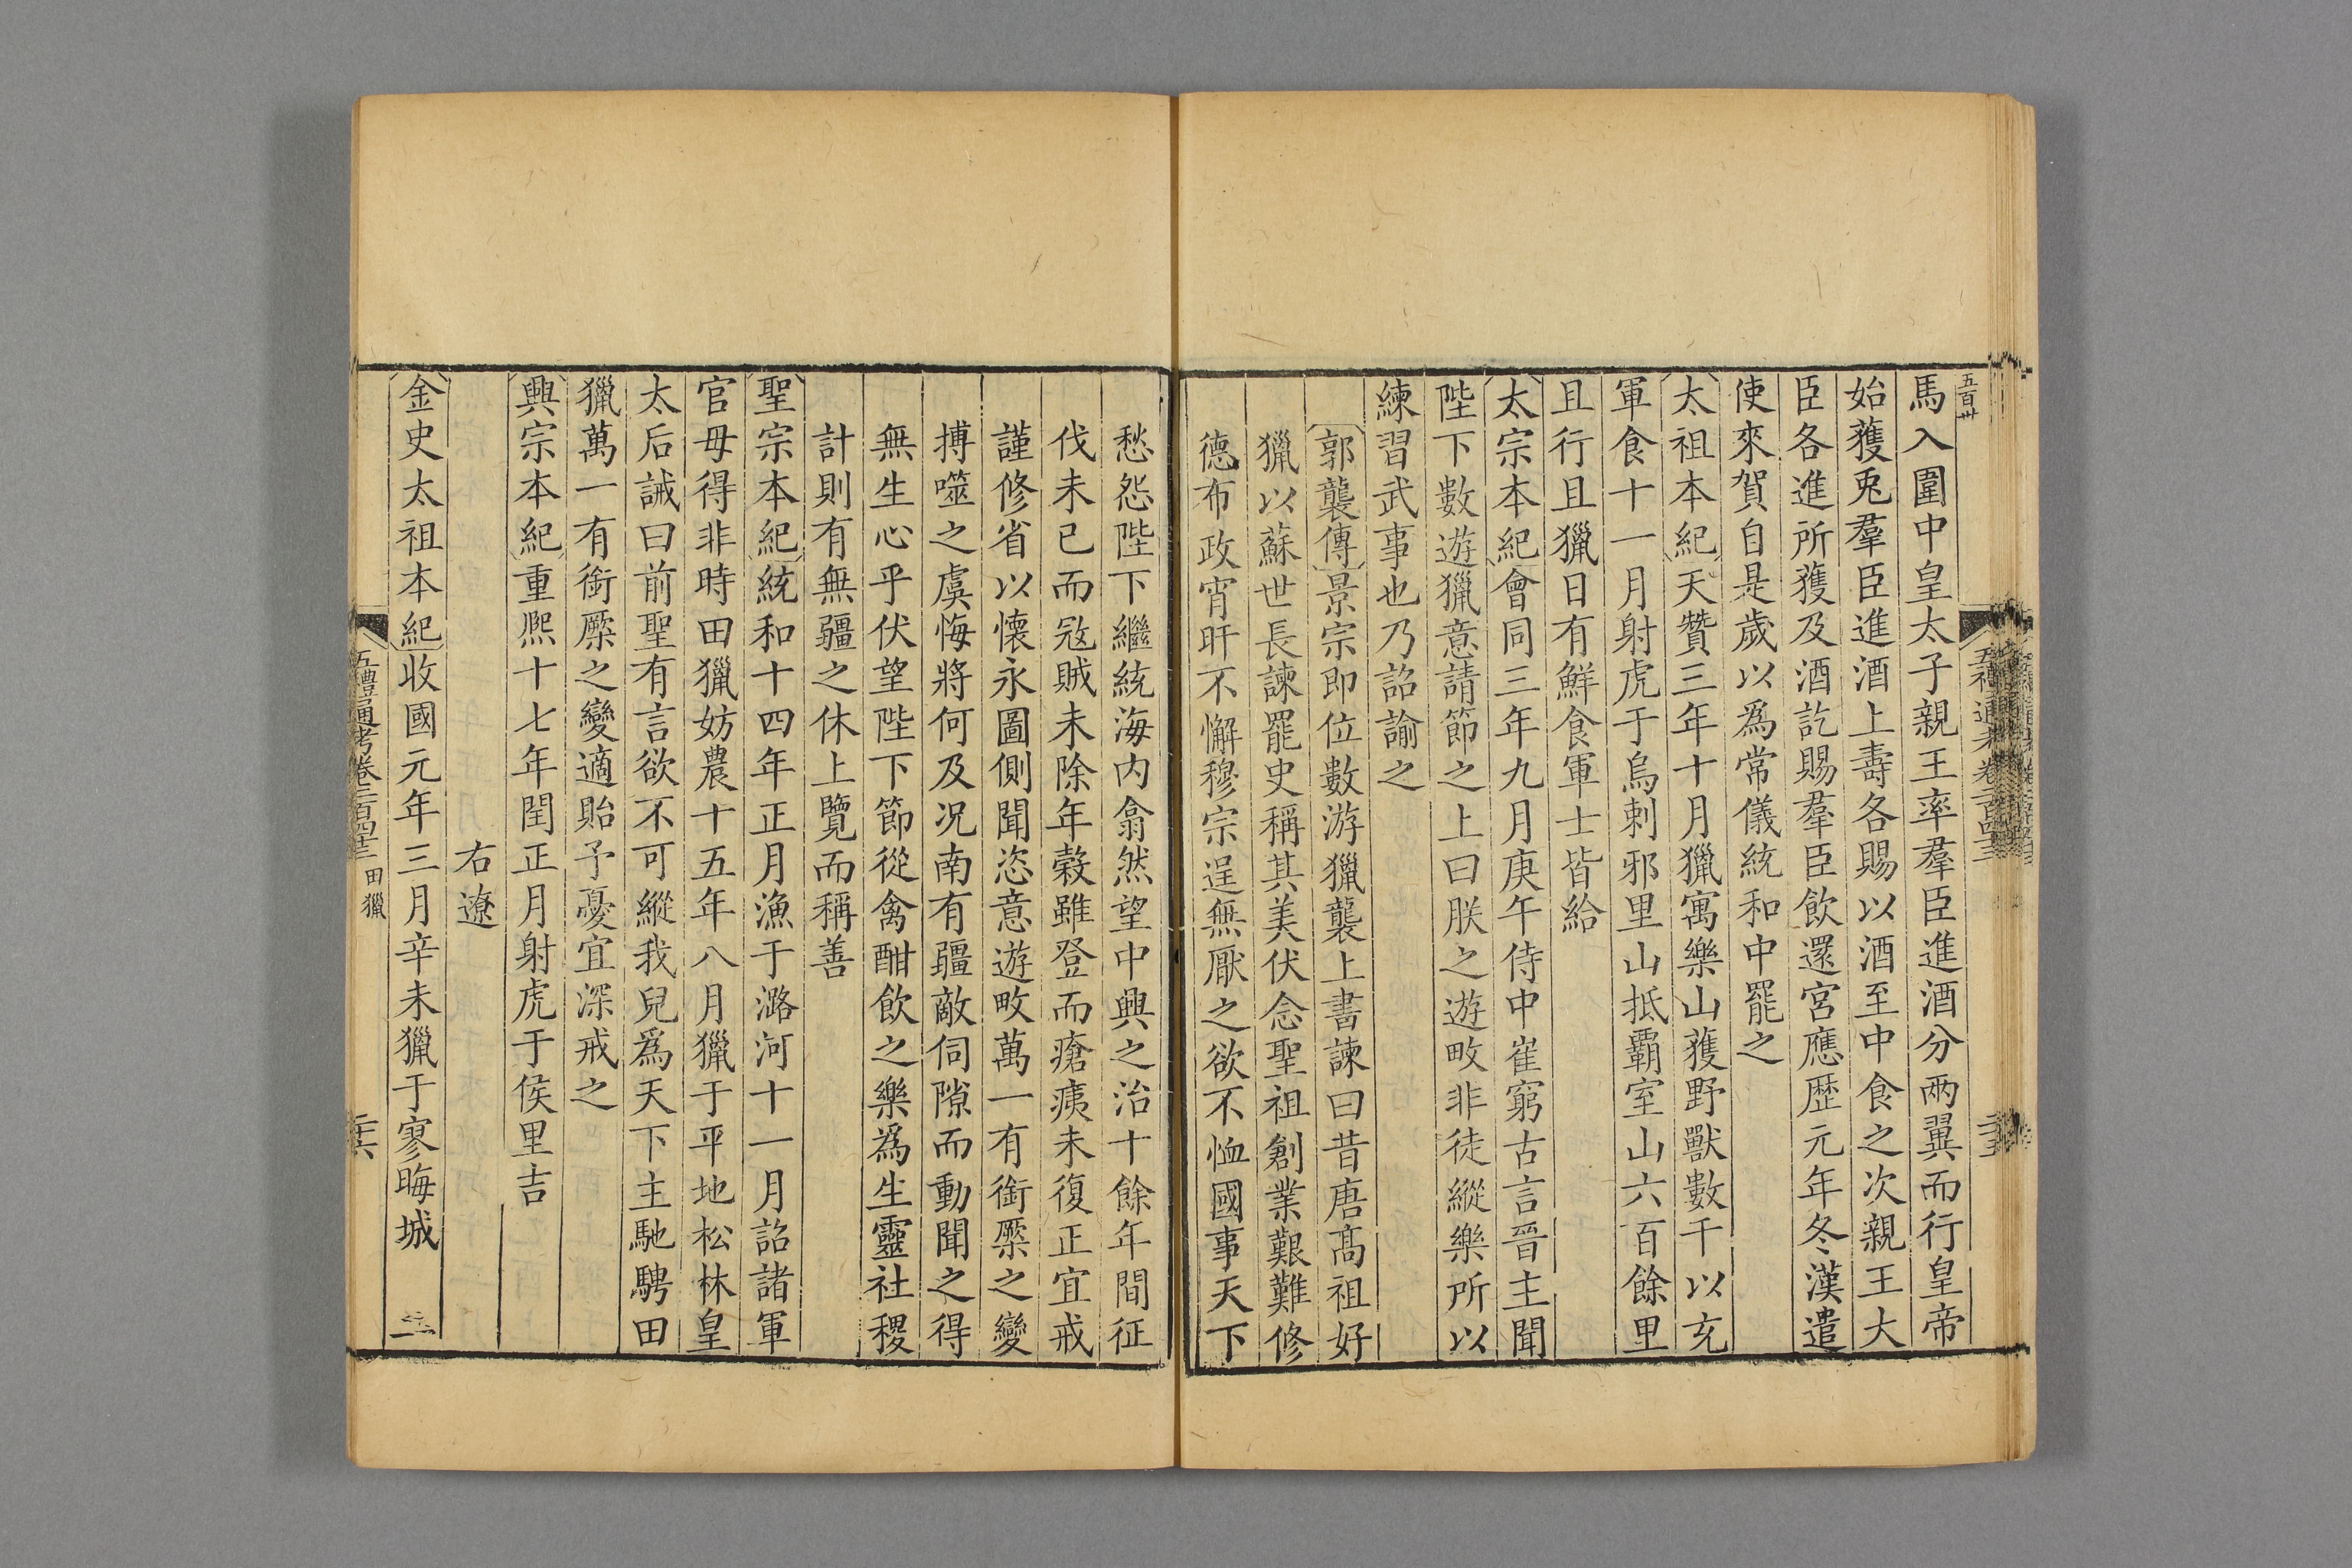 五百卅
馬入圍中皇太子親王率羣臣進酒分兩翼而行皇帝
始獲兎羣臣進酒上壽各賜以酒至中食之次親王大
臣各進所獲及酒訖賜羣臣飲還宮應歴元年冬漢遣
使來賀自是歲以爲常儀統和中罷之
太祖本紀天贊三年十月獵寓樂山獲野獸數千以充
軍食十一月射虎于烏剌邪里山抵霸室山六百餘里
且行且獵日有鮮食軍士皆給
太宗本紀會同三年九月庚午侍中崔窮古言晉主聞
陛下數遊獵意請節之上曰朕之遊畋非徒縱樂所以
練習武事也乃詔諭之
郭襲傳景宗即位數游獵襲上書諫曰昔唐髙祖好
獵以蘇世長諫罷史稱其美伏念聖祖創業艱難修
德布政宵旰不懈穆宗逞無厭之欲不恤國事天下
愁怨陛下繼統海内翕然望中興之治十餘年間征
伐未已而冦賊未除年穀雖登而瘡痍未復正宜戒
謹修省以懷永圖側聞恣意遊畋萬一有銜橜之變
搏噬之虞悔將何及况南有疆敵伺隙而動聞之得
無生心乎伏望陛下節從禽酣飲之樂爲生靈社稷
計則有無疆之休上覽而稱善
聖宗本紀統和十四年正月漁于潞河十一月詔諸軍
官毋得非時田獵妨農十五年八月獵于平地松林皇
太后誡曰前聖有言欲不可縱我兒爲天下主馳騁田
獵萬一有銜橜之變適貽予憂宜深戒之
興宗本紀重熙十七年閏正月射虎于侯里吉
右遼
金史太祖本紀收國元年三月辛未獵于寥晦城
五禮通考卷二百四十三 田獵